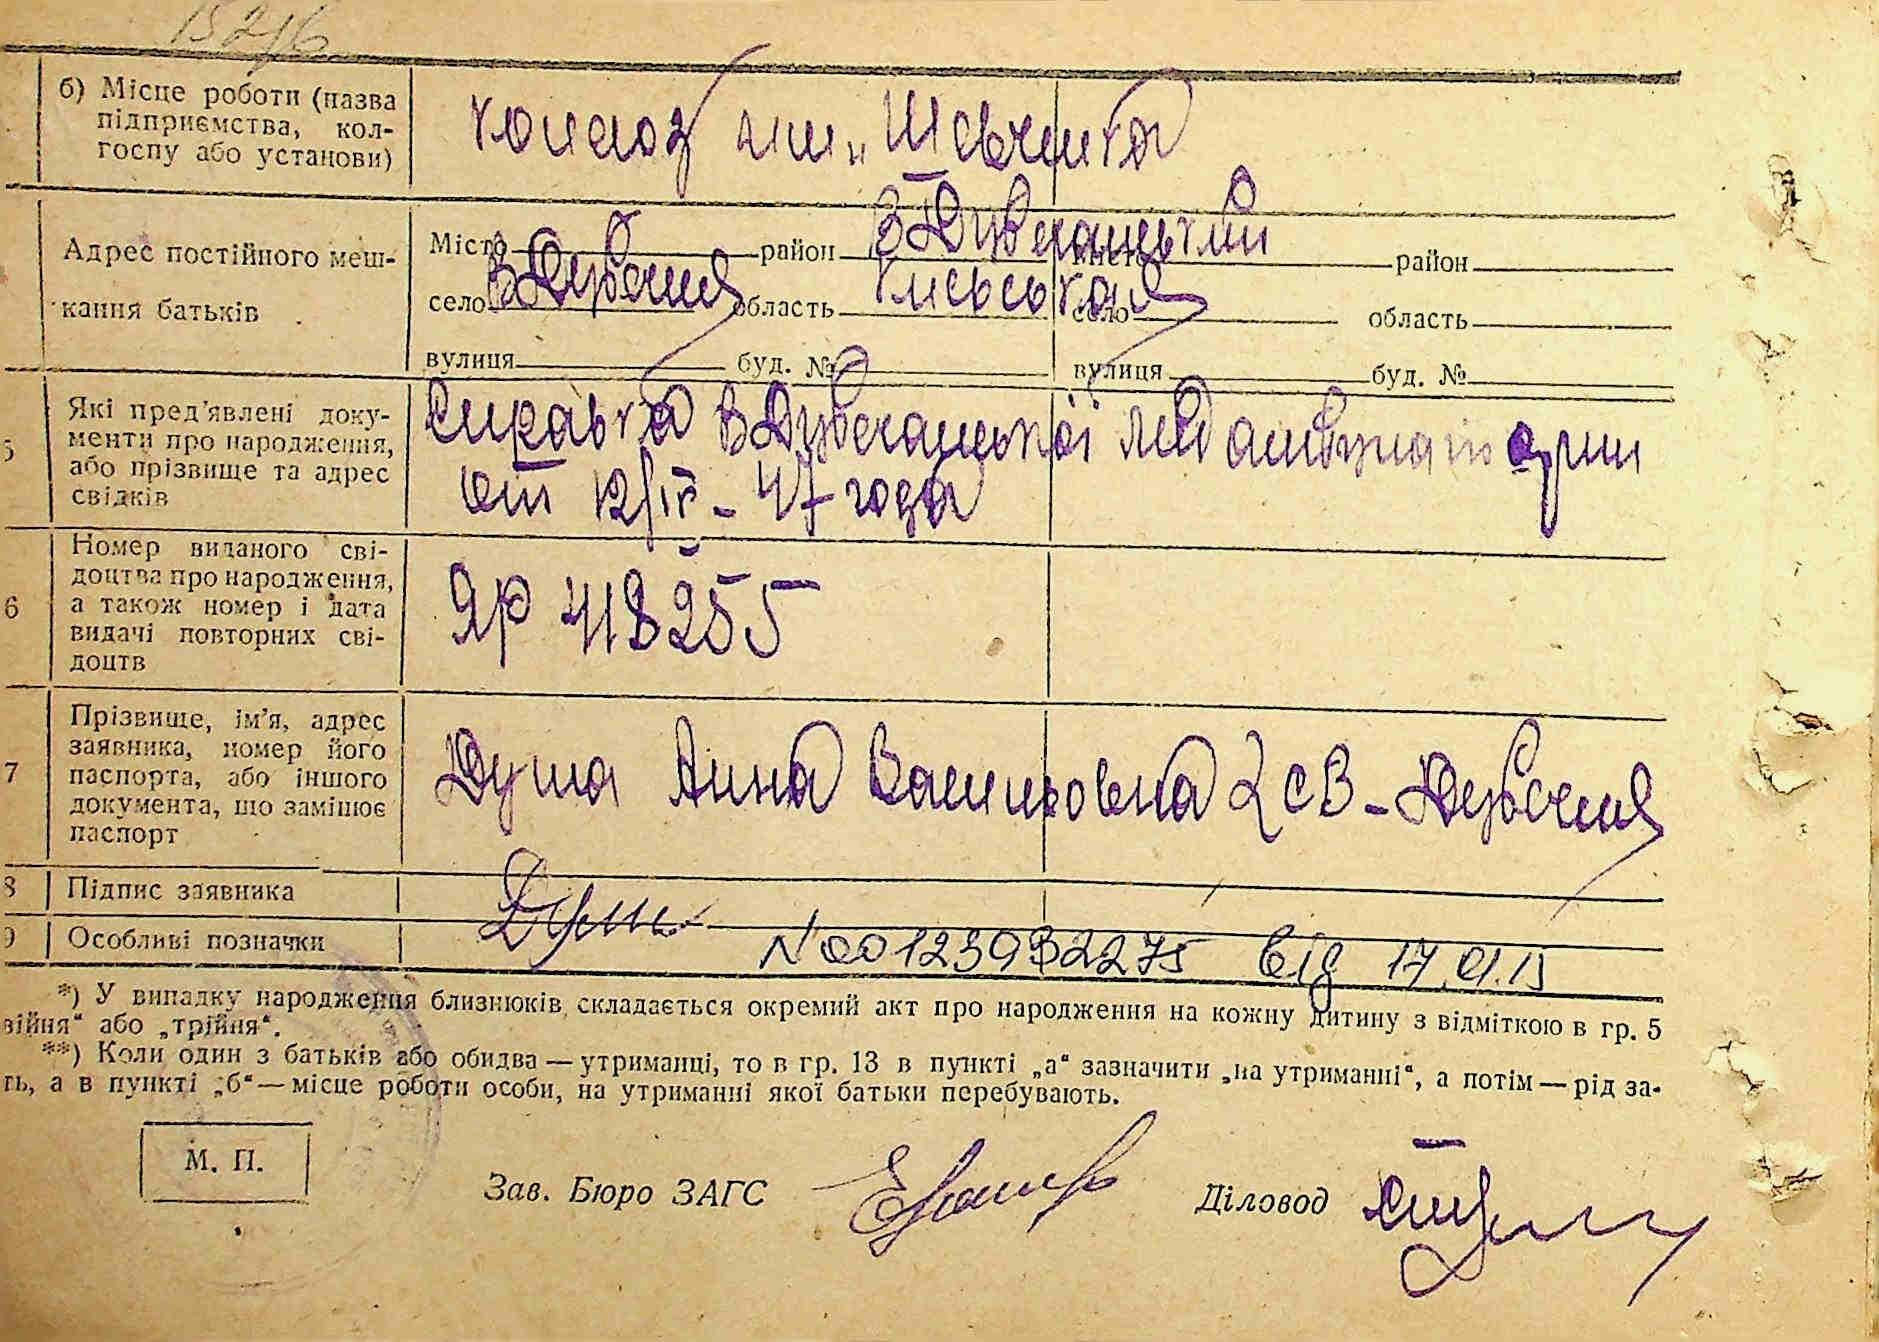 15216
б) Місце роботи (назва
підприємства, кол-
госпу або установи)
колхоз им. Шевченка
Адрес постійного меш-
кання батьків
Місто район В Дубечанський
село В Дубечня область Киевская
вулиця буд. №
місто район
село область
вулиця буд. №
5 Які пред'явлені доку-
менти про народження,
або прізвище та адрес
свідків
Справка В Дубечанської мед амбулатории
от 12/IV - 47 года
6 Номер виданого сві-
доцтва про народження,
а також номер і дата
видачі повторних сві-
доцтв
ЯР 418255
7 Прізвище, ім'я, адрес
заявника, номер його
паспорта, або іншого
документа, що замінює
паспорт
Душа Анна Васильовна с В-Дубечня
8 Підпис заявника
9 Особливі позначки
N 00123932275 від 17.01.15
*) У випадку народження близнюків складається окремий акт про народження на кожну дитину з відміткою в гр. 5
війня" або „трійня".
**) Коли один з батьків або обидва — утриманці, то в гр. 13 в пункті „а" зазначити „на утриманні", а потім — рід за-
ть, а в пункті „б" — місце роботи особи, на утриманні якої батьки перебувають.
М. П.
Зав. Бюро ЗАГС
Діловод